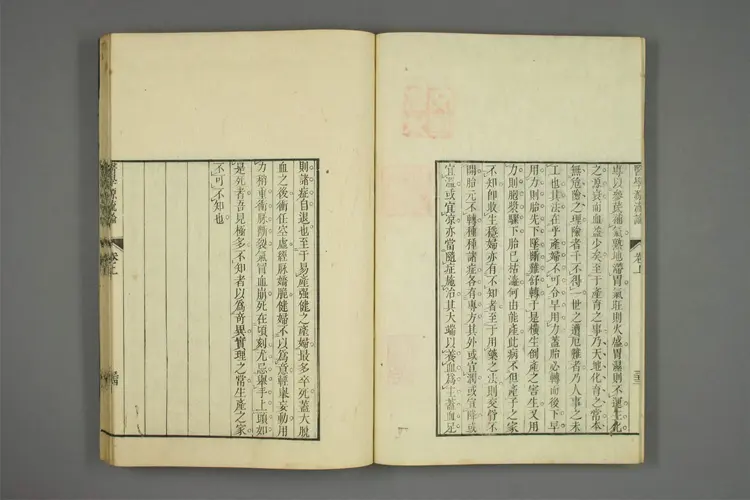 專以參芪補氣熟地滯胃氣旺則火盛胃濕則不運生化
之源衰而血益少矣至于產育之事乃天地化育之常本
無危險之理險者千不得一世之遭厄難者乃人事之未
工也其法在乎產婦不可令早用力蓋胎必轉而後下早
用力則胎先下墜斷難舒轉于是橫生倒產之害生又用
力則胞漿驟下胎已枯澁何由能產此病不但產子之家
不知即收生穩婦亦有不知者至于用藥之法則交骨不
開胎元不轉種種諸症各有專方其外或宜潤或宜降或
宜溫或宜凉亦當隨症施治其大端以養血爲主蓋血足
則諸症自退也至于易產强健之產婦最多卒死蓋大脫
血之後衝任空虛經脉嬌脆健婦不以爲意輕舉妄動用
力稍重衝脉斷裂氣冒血崩死在頃刻尤忌舉手上頭如
是死者吾見極多不知者以爲奇異實理之常生產之家
不可不知也
醫學源流論
卷上